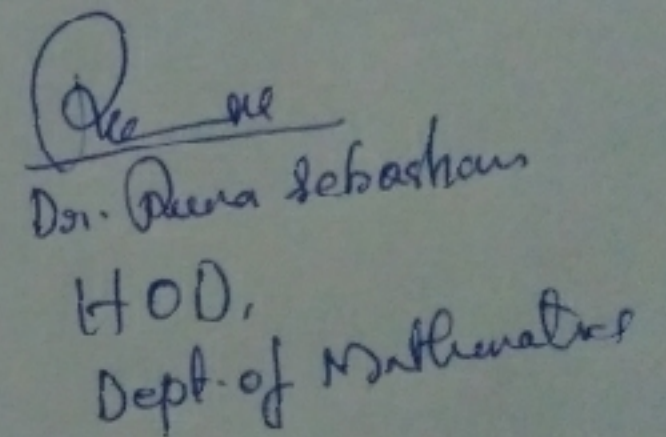 Dr. Reena Sebastian
HOD,
Dept. of Mathematics